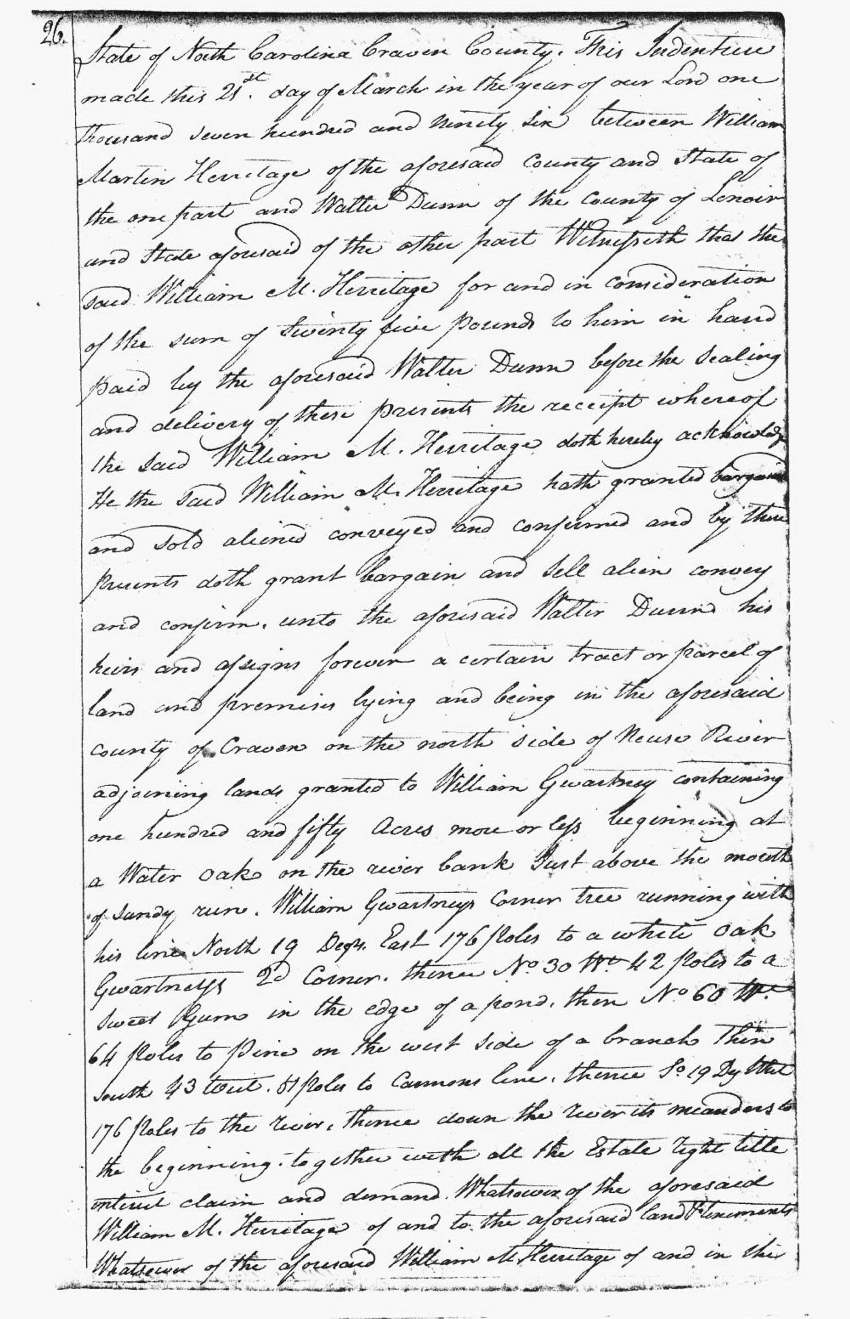 26.
State of North Carolina Craven County. This Indenture
made this 21st. day of March in the year of our Lord one
thousand seven hundred and ninety six between William
Martin Herritage of the aforesaid County and State of
the one part and Walter Dunn of the County of Lenoir
and State aforesaid of the other part Witnesseth that the
said William M. Herritage for and in consideration
of the sum of twenty five pounds to him in hand
paid by the aforesaid Walter Dunn before the sealing
and delivery of these presents the receipt whereof
the said William M. Herritage doth hereby acknowledge
He the said William M. Herritage hath granted bargained
and sold aliened conveyed and confirmed and by these
presents doth grant bargain and sell alien convey
and confirm. unto the aforesaid Walter Dunn his
heirs and assigns forever a certain tract or parcel of
land and premises lying and being in the aforesaid
county of Craven on the north side of Neuse River
adjoining lands granted to William Gwartney containing
one hundred and fifty Acres more or less beginning at
a Water Oak on the river bank Just above the mouth
of Sandy run. William Gwartneys Corner tree running with
his line North 19 Degrs. East 176 Poles to a white Oak
Gwartneys 2d Corner. thence No 30 Wt 42 Poles to a
Sweet Gum in the edge of a pond. then No 60 Wt.
64 Poles to Pine on the west side of a branch then
South 43 West. Poles to Cannons line. thence So. 19 Dg West
176 Poles to the river. thence down the river its meanders to
the beginning. together with all the Estate right title
interest claim and demand. Whatsoever of the aforesaid
William M. Herritage of and to the aforesaid land & tenements
Whatsoever of the aforesaid William M Herritage of and in the